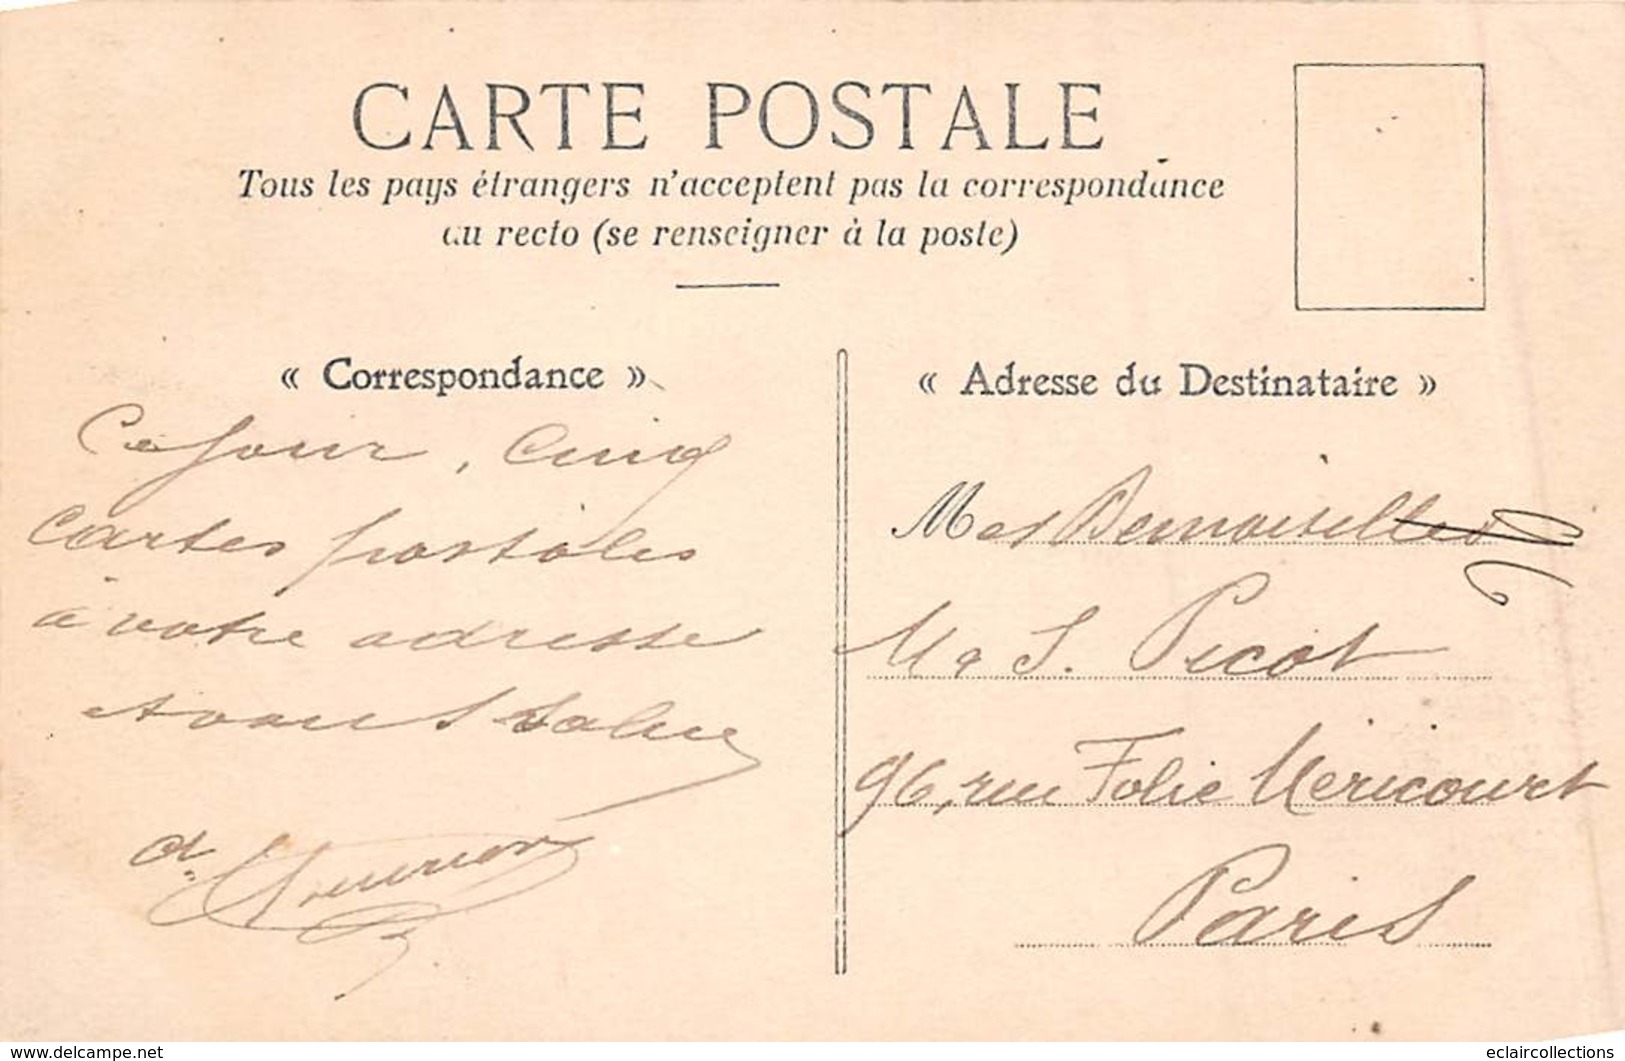 CARTE POSTALE
Tous les pays étrangers n'acceptent pas la correspondance
au recto (se renseigner à la poste)
« Correspondance »
Ce Jour, Cinq
Cartes postales
à votre adresse
salue
« Adresse du Destinataire »
Mes Demoiselles
M & S. Picot
96, rue Folie Méricourt
Paris
www.delcampe.net
eclaircollections